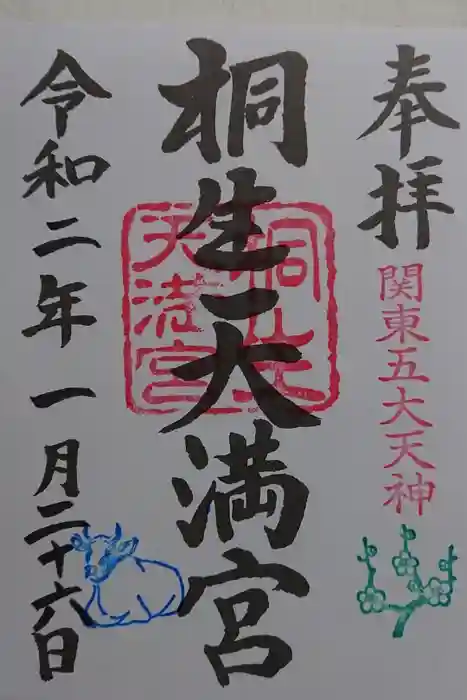 奉拝
関東五大天神
桐生天満宮
桐生天満宮
令和二年一月二十六日